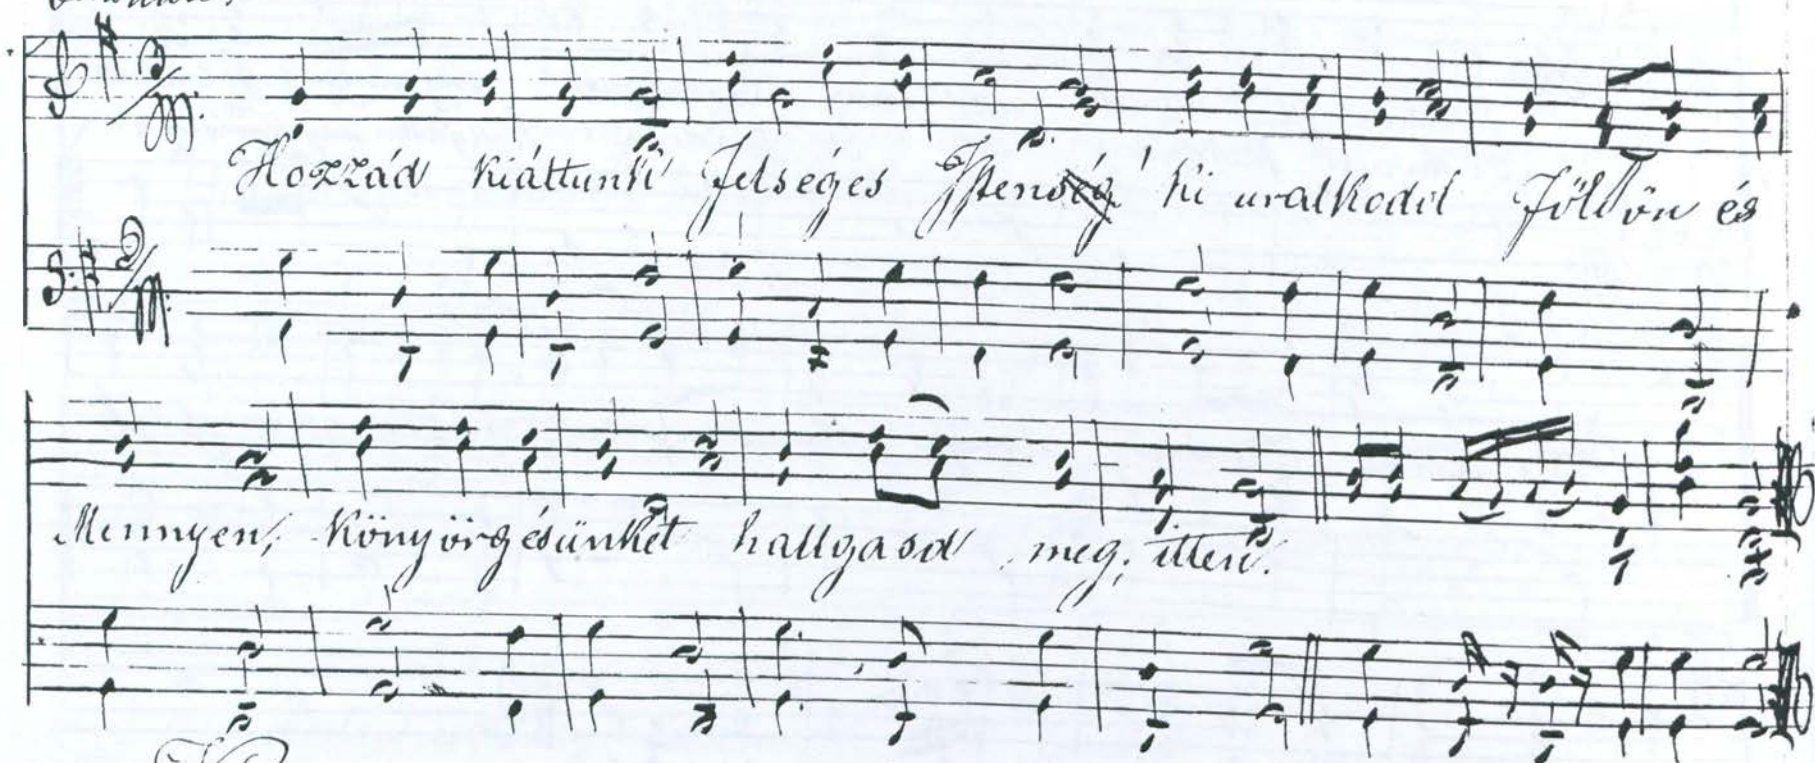 Hozzád kiáltunk Felséges Isten ki uralkodol Földön és
Mennyen, Könyörgésünket hallgasd meg, itten.